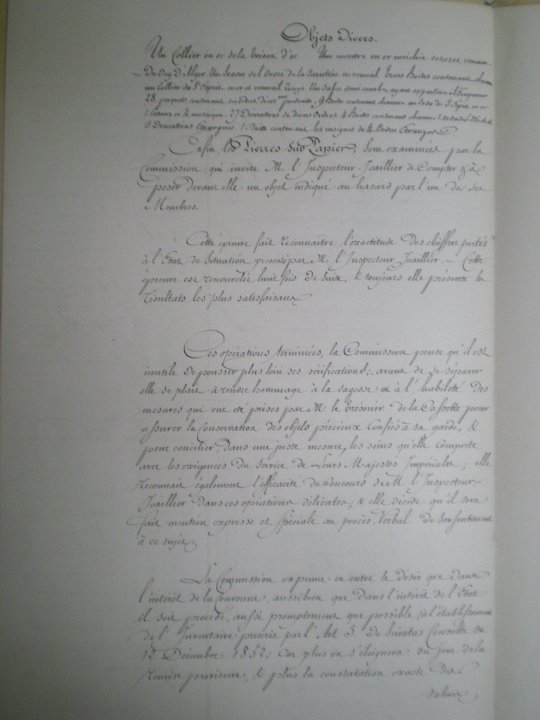 Objets divers.
Un Collier en or de la toison d'or Une montre en or enrichie de roses, venant
Du Dey D'Alger Un de l'ordre de la Jarretière en émail Trois Boites contenant chacune
un Collier du St Esprit, or et émail rouge Un Sabre ayant appartenu à l'Empereur
28 paquets contenant 9 Boites contenant chacune un ordre du St Esprit en or
77 Décorations de divers Ordres 4 Boites contenant chacune
5 Décorations Etrangères 1 Boite contenant les insignes de 4 Ordres Etrangers
Enfin, les Pierres sur Papier, sont examinées par la
Commission, qui invite M. l'Inspecteur-Joaillier à compter & à
peser devant elle un objet indiqué au hasard par l'un de ses
Membres.
Cette épreuve fait reconnaitre l'exactitude des chiffres portés
à l'Etat de Situation présenté par M. l'Inspecteur Joaillier — Cette
épreuve est renouvelée huit fois de suite, & toujours elle présente les
résultats les plus satisfaisans.
Ces opérations terminées, la Commission pense qu'il est
inutile de pousser plus loin ses vérifications; avant de se séparer
elle se plait à rendre hommage à la sagesse & à l'habileté des
mesures qui ont été prises par M. le Trésorier de la Cassette pour
assurer la conservation des objets précieux confiés à sa garde, &
pour concilier, dans une juste mesure, les soins qu'elle comporte
avec les exigences du service de Leurs Majestés Impériales; elle
reconnait également l'efficacité du concours de M. l'Inspecteur-
Joaillier dans ces opérations délicates; & elle décide qu'il sera
fait mention expresse et spéciale au procès Verbal de son sentiment
à ce sujet.
La Commission exprime en outre le désir que dans
l'intérêt de la Couronne, aussi bien que dans l'intérêt de l'Etat
il soit procédé, aussi promptement que possible, à l'établissement
de l'Inventaire prescrit par l'Art 5. du Senatus Consulte du
12 Décembre 1852; car plus on s'éloignera du jour de la
remise provisoire, & plus la constatation exacte des
valeurs